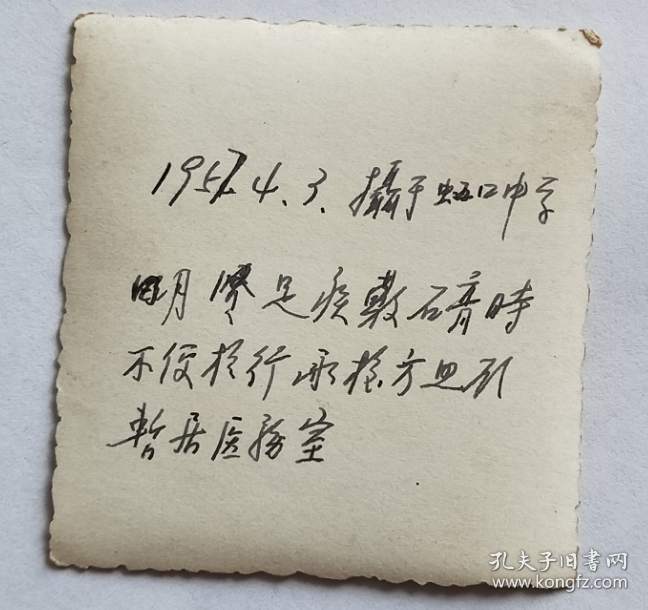 1957.4.3. 攝于虹口中学
明月 足疾敷石膏時
不便於行 校方
暫居医務室
孔夫子旧書网
www.kongfz.com